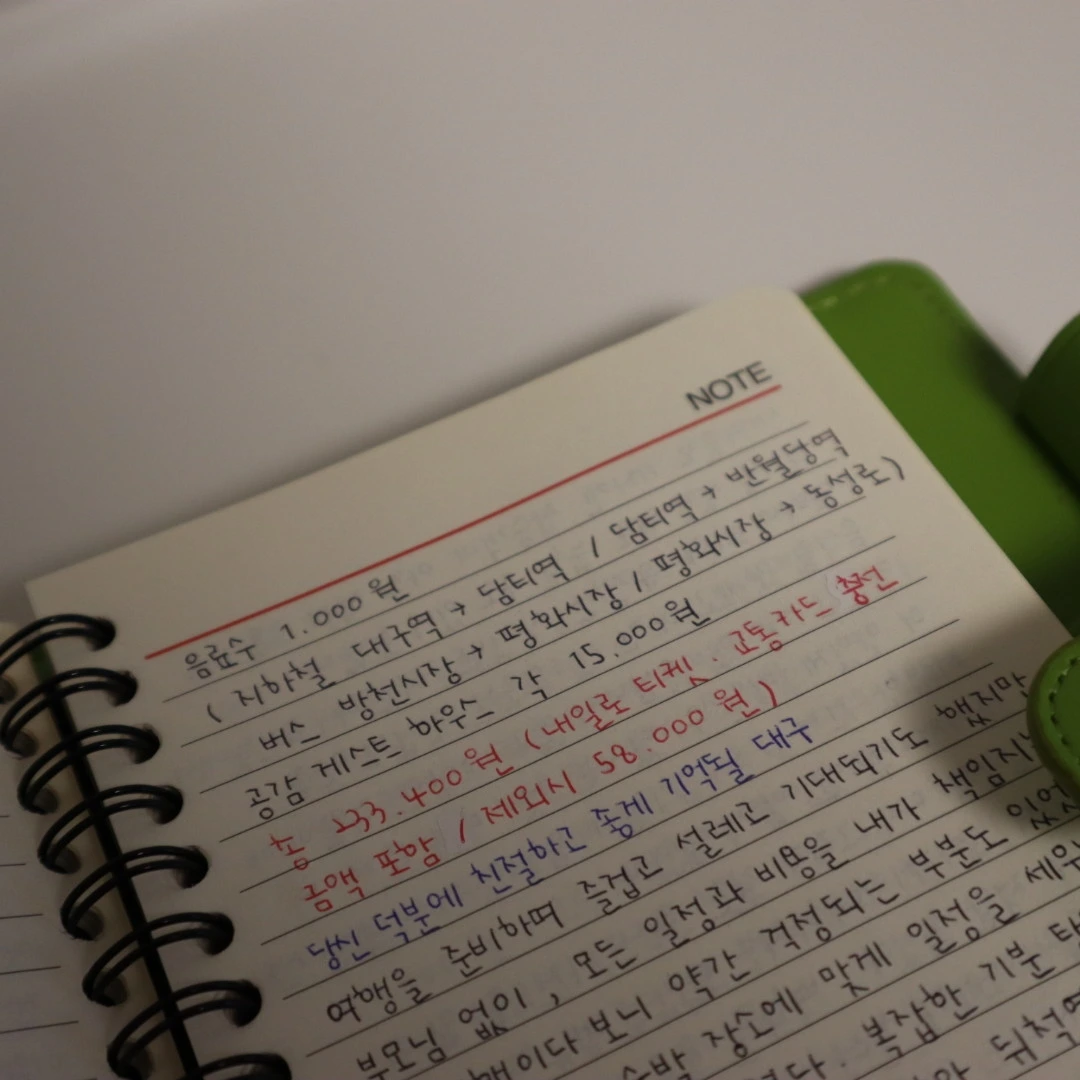 NOTE
음료수 1.000원
( 지하철 대구역 → 담티역 / 담티역 → 반월당역
버스 방천시장 → 평화시장 / 평화시장 → 동성로 )
공감 게스트 하우스 각 15.000원
총 233.400원 ( 내일로 티켓. 교통카드 충전
금액 포함 / 제외시 58.000원 )
당신 덕분에 친절하고 좋게 기억될 대구
여행을 준비하며 즐겁고 설레고 기대되기도 했지만
부모님 없이, 모든 일정과 비용을 내가 책임지는
보니 약간 걱정되는 부분도 있었
장소에 맞게 일정을 세우
복잡한 기분
뒤척